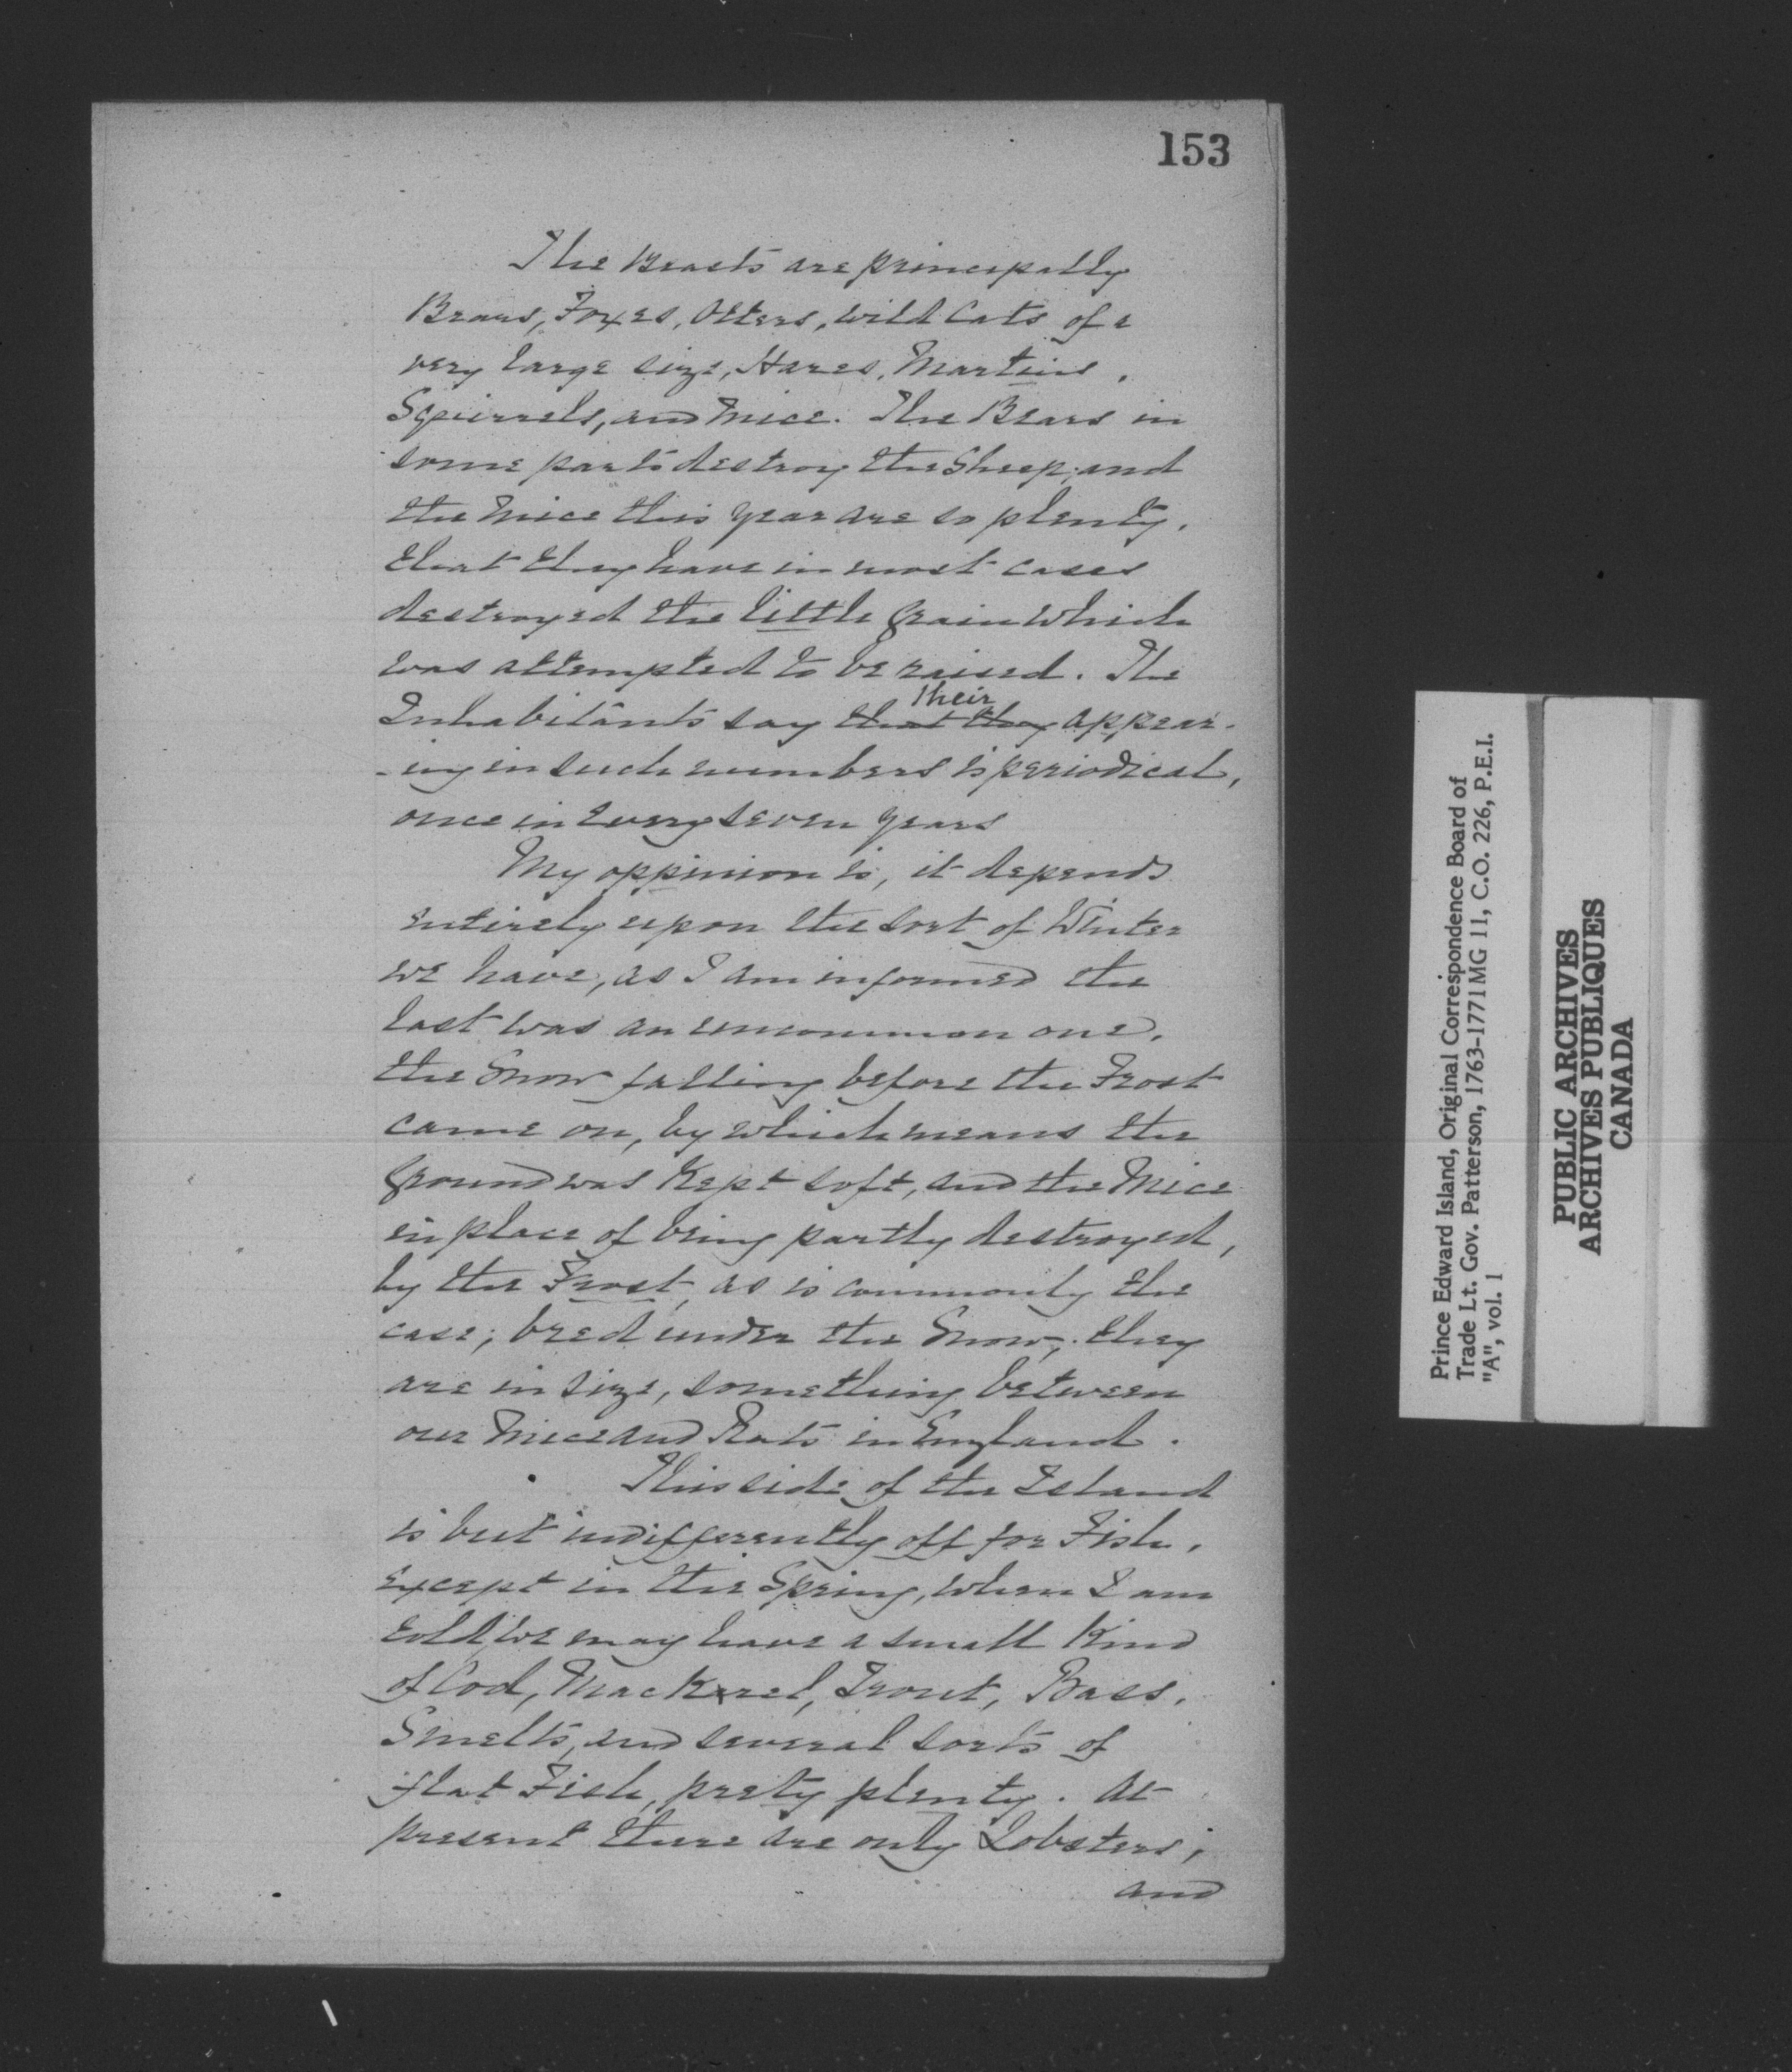 153
The Beasts are principally
Bears, Foxes, Otters, wild Cats of a
very large size, Hares, Martins,
Squirrels, and Mice. The Bears in
some parts destroy the Sheep; and
the Mice this year are so plenty,
that they have in most cases
destroyed the little grain which
was attempted to be raised. The
Their
Inhabitants say that they appear-
-ing in such numbers is periodical,
once in Every seven years
My oppinion is, it depends
entirely upon the sort of Winter
we have, as I am informed the
last was an uncommon one,
the Snow falling before the Frost
came on, by which means the
ground was Kept soft, and the Mice
in place of being partly destroyed,
by the Frost, as is commonly the
case; bred under the Snow; they
are in size, something between
our Mice and Rats in England.
This side of the Island
is but indifferently off for Fish,
except in the Spring, when I am
told, we may have a small Kind
of Cod, Mackerel, Trout, Bass,
Smelts, and several sorts of
flat Fish, prety plenty. At
present there are only Lobsters,
and
Prince Edward Island, Original Correspondence Board of
Trade Lt. Gov. Patterson, 1763-1771 MG 11, C.O. 226, P.E.I.
"A", vol. 1
PUBLIC ARCHIVES
ARCHIVES PUBLIQUES
CANADA